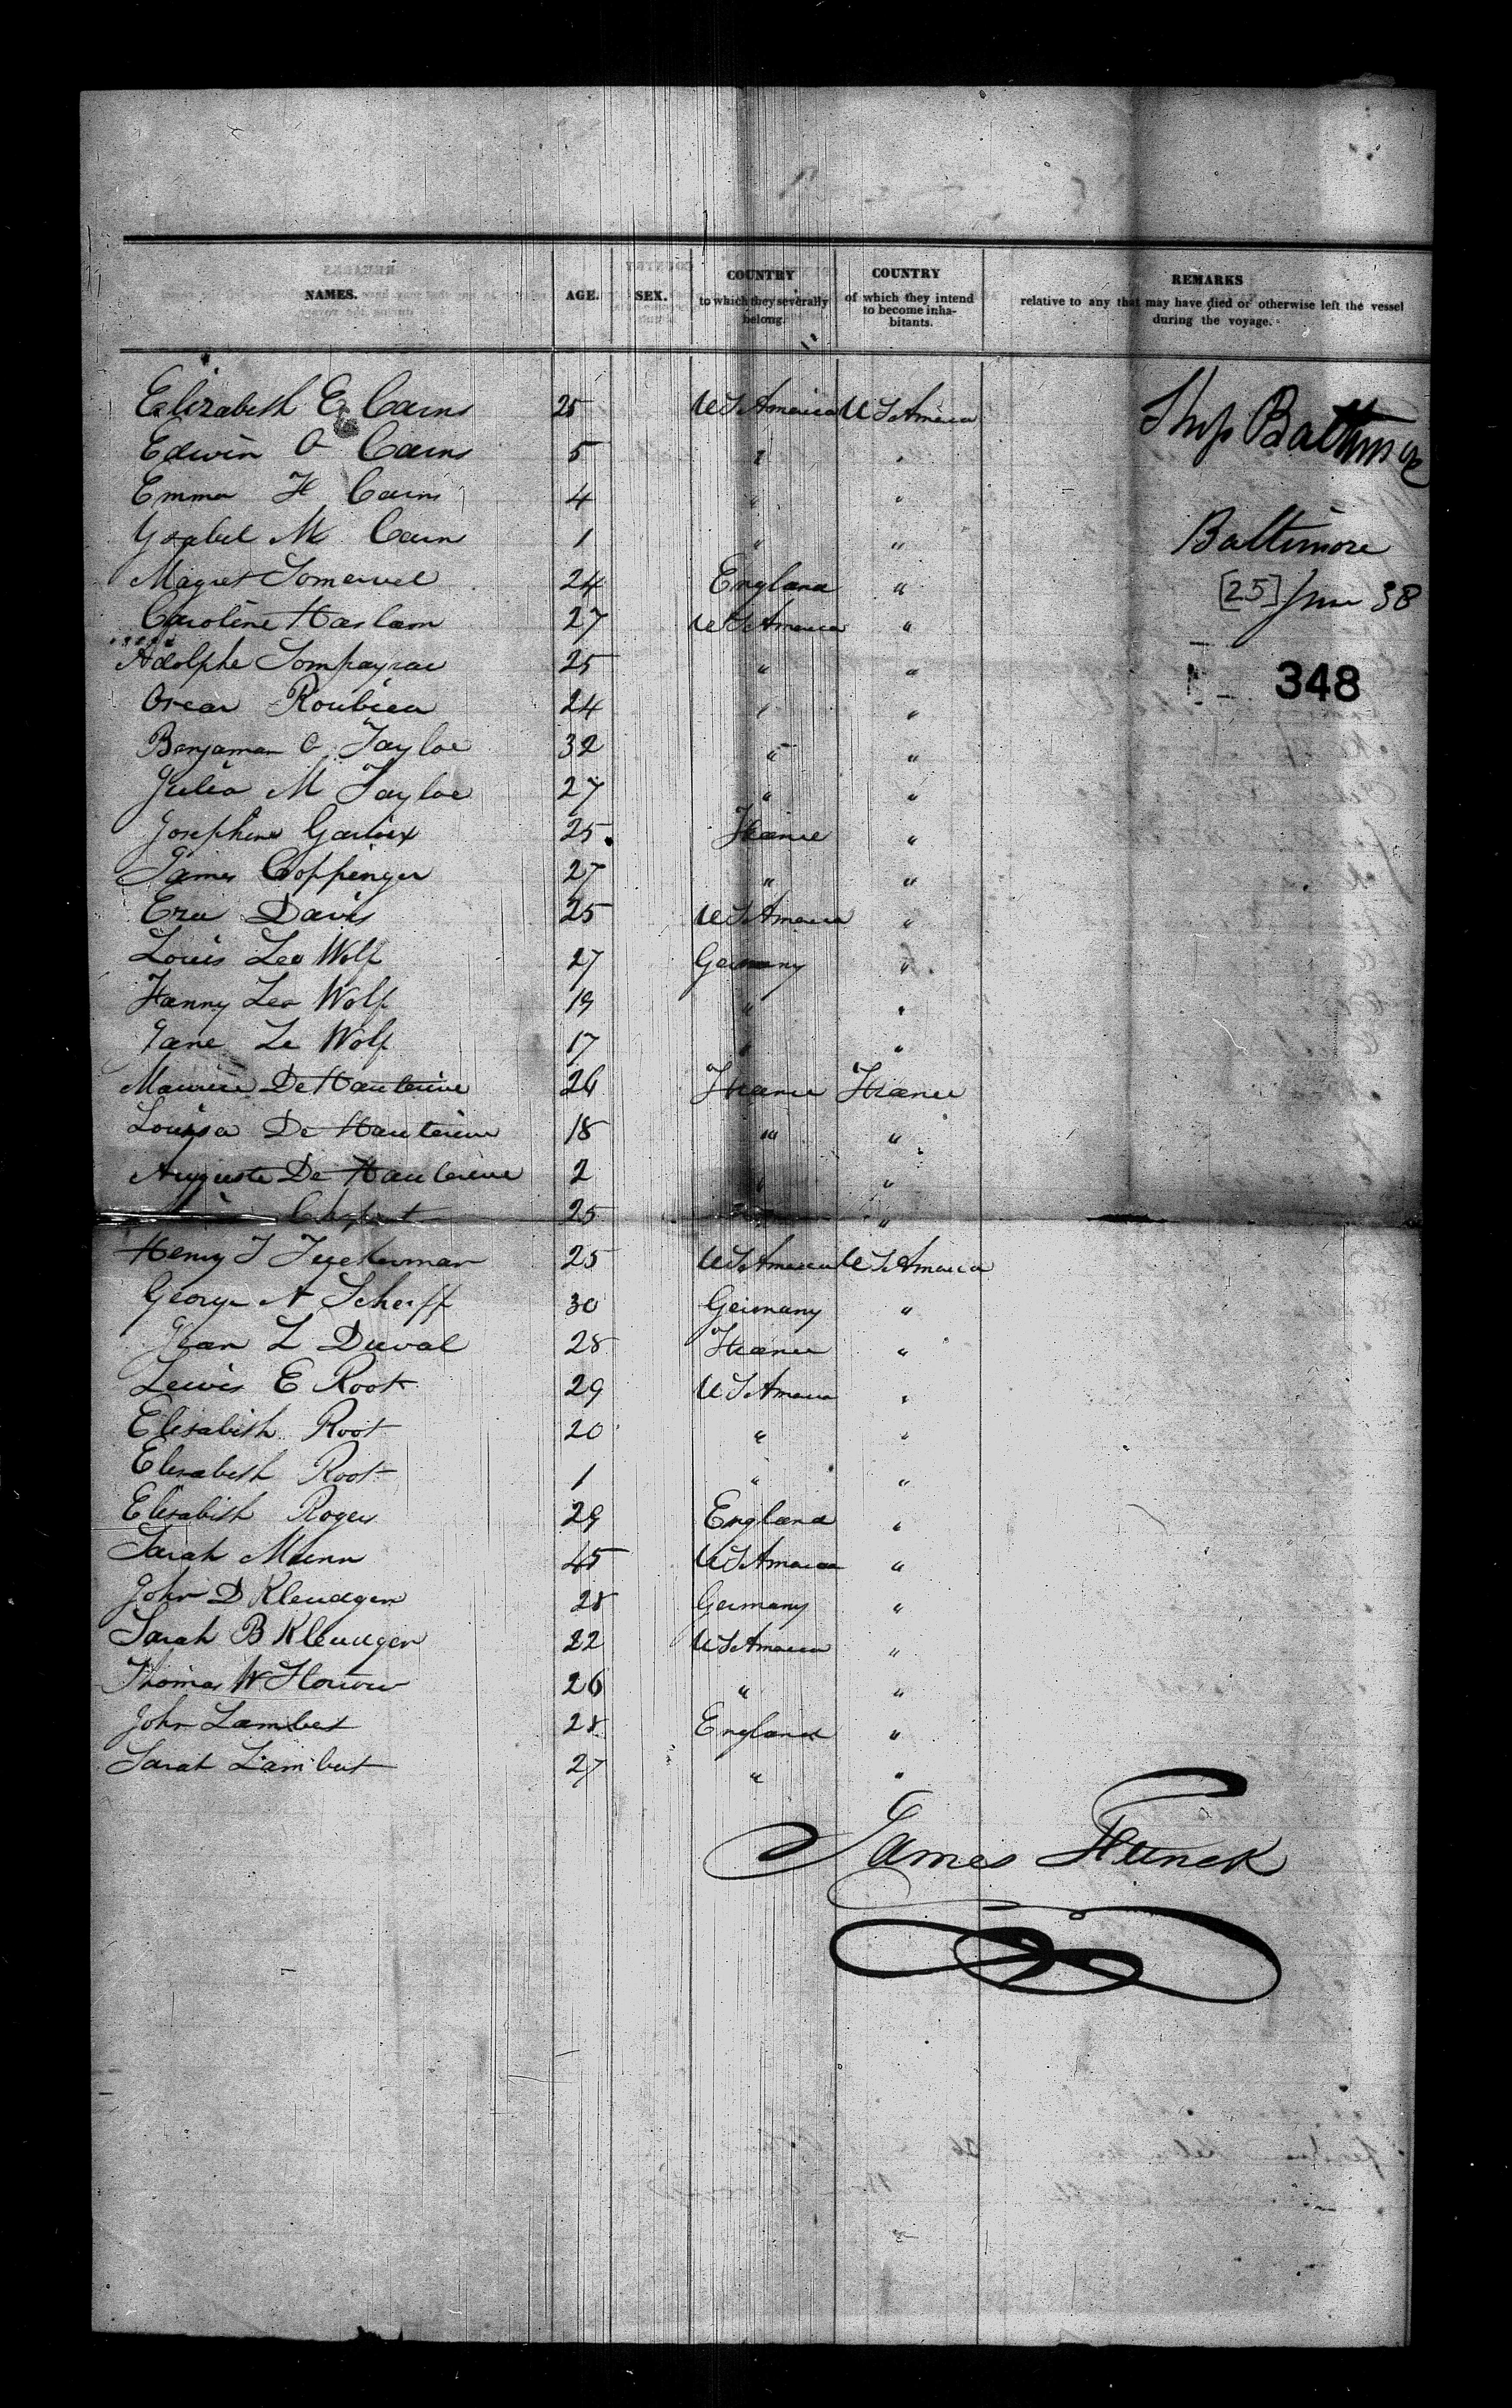 NAMES. AGE. SEX. COUNTRY to which they severally belong. COUNTRY of which they intend to become inhabitants. REMARKS relative to any that may have died or otherwise left the vessel during the voyage.
Elizabeth E Cairns 25 U S America U S America
Ship Baltimore
Edwin O Cairns 5 " "
Emma H Cairns 4 " "
Ysabel M Cairn 1 " "
Baltimore
Magret Somervel 24 England "
[25] June 38
Caroline Haslam 27 U S America "
Adolphe Sompayrac 25 " "
348
Oscar Roubieu 24 " "
Benjaman O Tayloe 32 " "
Julia M Tayloe 27 " "
Josephine 25 France "
James Coppinger 27 " "
Ezra Davis 25 U S America "
Louis Leo Wolf 27 Germany "
Fanny Leo Wolf 19 " "
Jane Le Wolf 17 " "
Maurice De Hauterive 26 France France
Louisa De Hauterive 18 " "
Auguste De Hauterive 2 " "
25 "
Henry T Tuckerman 25 U S America U S America
George A Scherff 30 Germany "
Jean L Duval 28 France "
Lewis E Root 29 U S America "
Elesabeth Root 20 " "
Elesabeth Root 1 " "
Elesabeth Roger 29 England "
Sarah Munn 45 U S America "
John D Kleudgen 28 Germany "
Sarah B Kleudgen 22 U S America "
Thomas W 26 " "
John Lambert 28 England "
Sarah Lambert 27 " "
James Funck